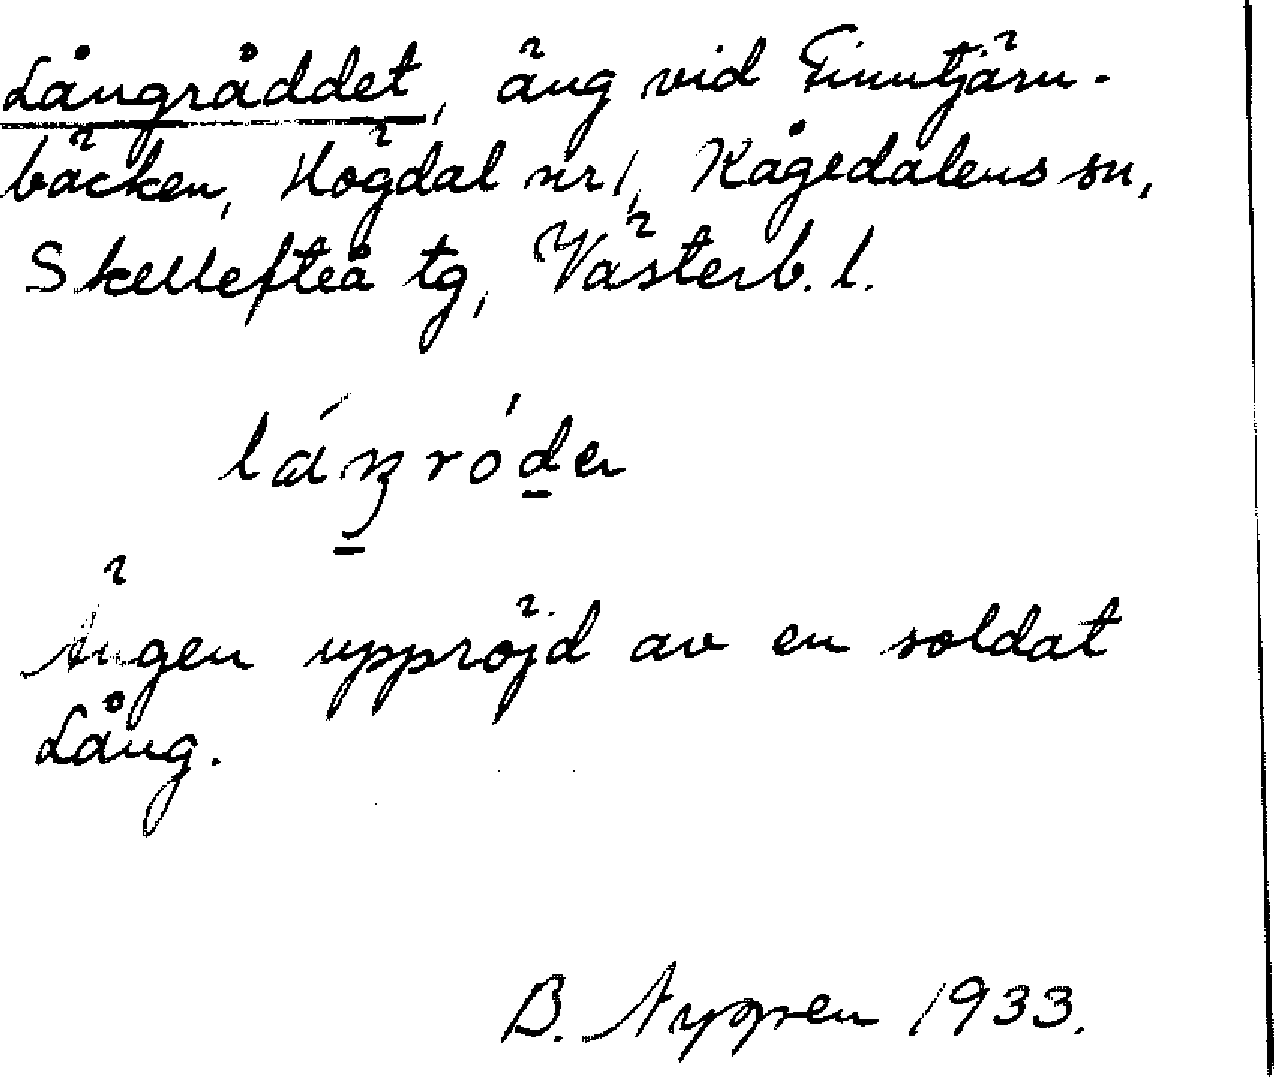 Långråddet, äng vid Finntjärn-
bäcken, Högdal nr 1, Kågedalens sn,
Skellefteå tg, Västerb. l.
Ängen uppröjd av en soldat
Lång.
B. Nygren 1933.